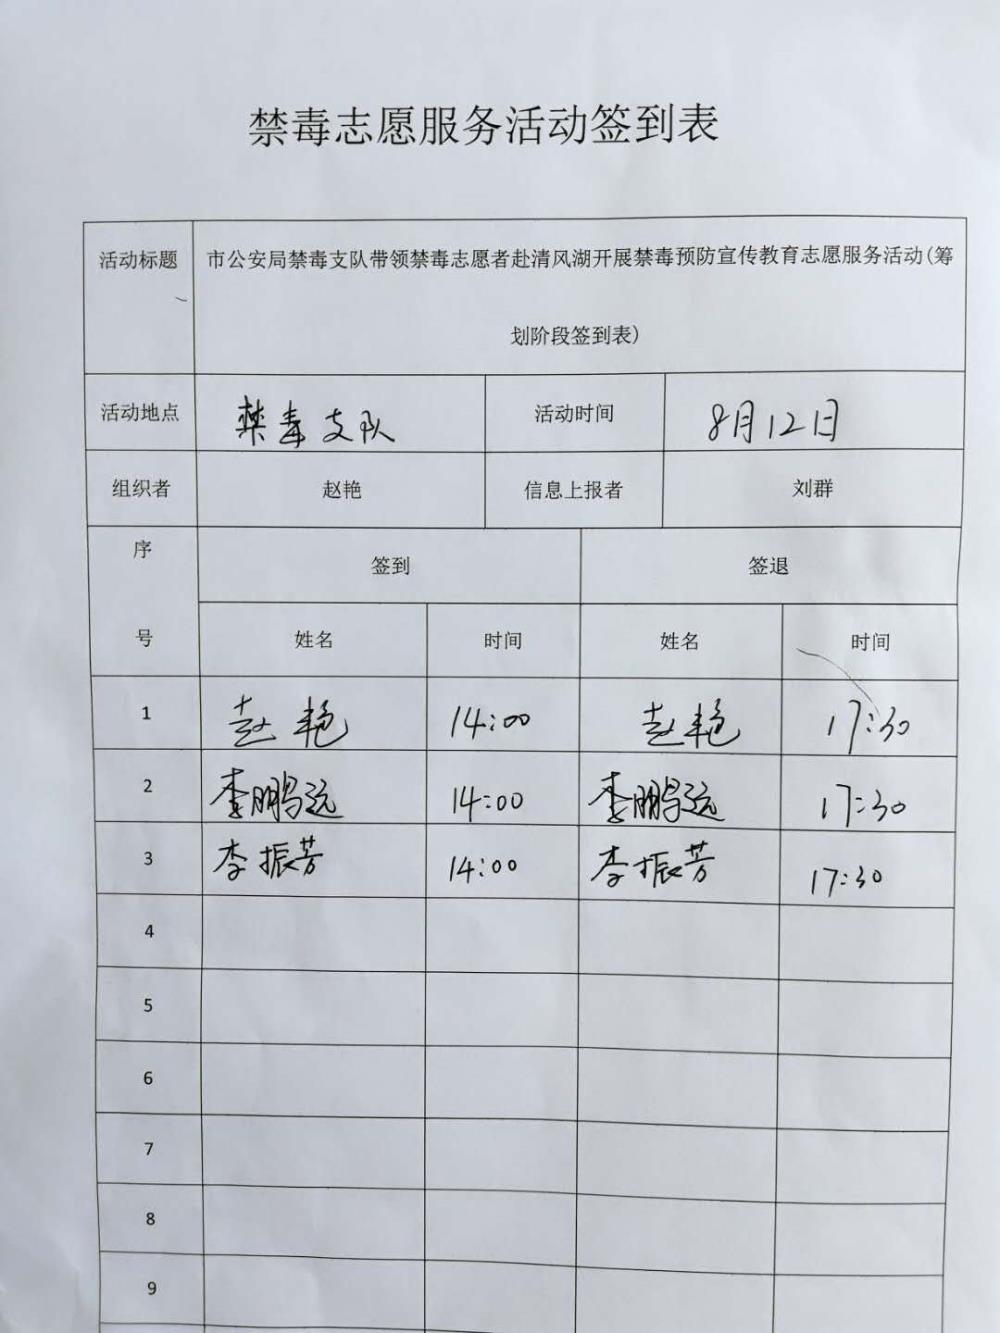 禁毒志愿服务活动签到表
活动标题 市公安局禁毒支队带领禁毒志愿者赴清风湖开展禁毒预防宣传教育志愿服务活动(筹
划阶段签到表)
活动地点 禁毒支队 活动时间 8月12日
组织者 赵艳 信息上报者 刘群
序
签到 签退
号 姓名 时间 姓名 时间
1 赵艳 14:00 赵艳 17:30
2 李鹏远 14:00 李鹏远 17:30
3 李振芳 14:00 李振芳 17:30
4
5
6
7
8
9